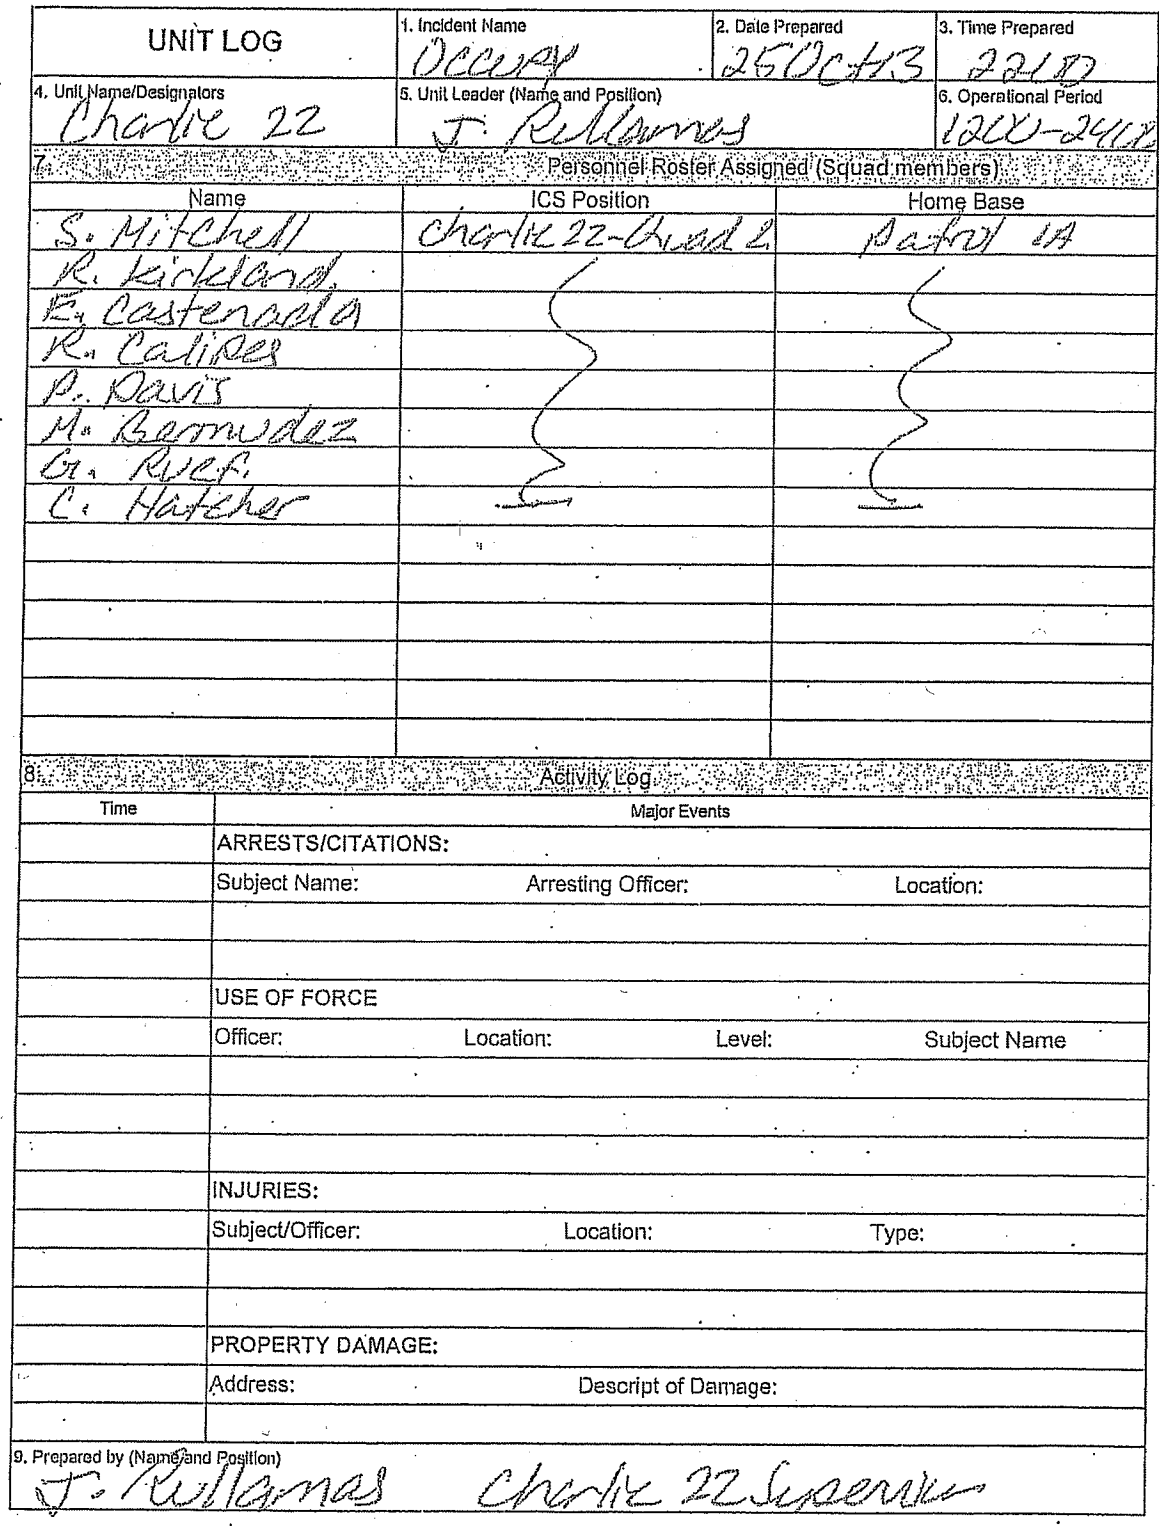 UNIT LOG
1. Incident Name
Occupy
2. Date Prepared
25Oct13
3. Time Prepared
2200
4. Unit Name/Designators
Charlie 22
5. Unit Leader (Name and Position)
J. Rullamas
6. Operational Period
1200-2400
7. Personnel Roster Assigned (Squad members)
Name ICS Position Home Base
S. Mitchell Charlie 22-Quad 2 Patrol 1A
R. Kirkland.
E. Castenada
R. Calipes
P. Davis
M. Bermudez
G. Ruef.
C. Hatcher
8. Activity Log
Time Major Events
ARRESTS/CITATIONS:
Subject Name: Arresting Officer: Location:
USE OF FORCE
Officer: Location: Level: Subject Name
INJURIES:
Subject/Officer: Location: Type:
PROPERTY DAMAGE:
Address: Descript of Damage:
9. Prepared by (Name and Position)
J. Rullamas Charlie 22 Supervisor